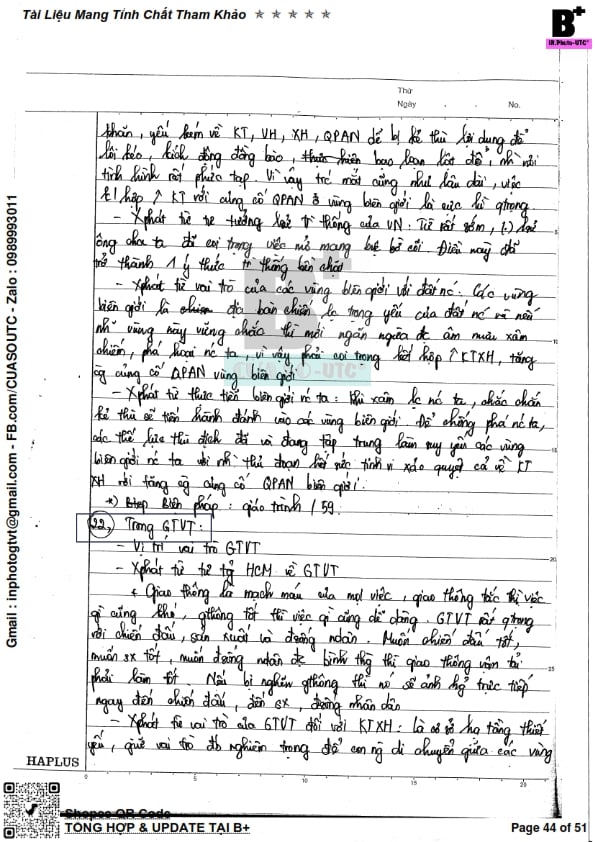 Tài Liệu Mang Tính Chất Tham Khảo ★ ★ ★ ★ ★
B+
IN.Photo-UTC
Thứ
Ngày . . No.
khăn, yếu kém về KT, VH, XH, QPAN dễ bị kẻ thù lợi dụng để
lôi kéo, kích động đồng bào, thực hiện bạo loạn lật đổ,
tình hình rất phức tạp. Vì vậy trc mắt cũng như lâu dài, việc
k/hợp ↑ KT với củng cố QPAN ở vùng biên giới là cực kì qtrọng.
- Xphát từ tư tưởng lsử tr thống của VN: Từ rất sớm, (.) lsử
ông cha ta đã coi trọng việc mở mang bờ cõi. Điều này đã
trở thành 1 ý thức tr thống bền chặt
- Xphát từ vai trò của các vùng biên giới với đất nc. Các vùng
biên giới là địa bàn chiến lc trọng yếu của đất nc và nếu
nh vùng này vững chắc thì mới ngăn ngừa đc âm mưu xâm
chiếm, phá hoại nc ta, vì vậy phải coi trọng kết hợp ↑ KTXH, tăng
cg củng cố QPAN vùng biên giới
- Xphát từ thực tiễn biên giới nc ta: Khi xâm lc nc ta, chắc chắn
kẻ thù sẽ tiến hành đánh vào các vùng biên giới. Để chống phá nc ta,
các thế lực thù địch đã và đang tập trung làm suy yếu các vùng
biên giới nc ta với nh thủ đoạn hết sức tinh vi xảo quyệt cả về KT
XH nên tăng cg củng cố QPAN biên giới.
*) Biện pháp: giáo trình / 59.
22, Trong GTVT:
- Vị trí vai trò GTVT
- Xphát từ tư tg HCM về GTVT
+ Giao thông là mạch máu của mọi việc, giao thông tắc thì việc
gì cũng khó, gthông tốt thì việc gì cũng dễ dàng. GTVT rất qtrọng
với chiến đấu, sản xuất và đsống ndân. Muốn chiến đấu tốt,
muốn sx tốt, muốn đsống ndân đc bình thg thì giao thông vận tải
phải làm tốt. Nếu bị nghẽn gthông thì nó sẽ ảnh hg trực tiếp
ngay đến chiến đấu, đến sx, đsống nhân dân
- Xphát từ vai trò của GTVT đối với KTXH: là cơ sở hạ tầng thiết
yếu, giữ vai trò đb nghiêm trọng để con ng di chuyển giữa các vùng
20
25
HAPLUS
0 5 10 15 20
Gmail : inphotogtvt@gmail.com - FB.com/CUASOUTC - Zalo : 0989993011
Shopee QR Code
TỔNG HỢP & UPDATE TẠI B+
Page 44 of 51